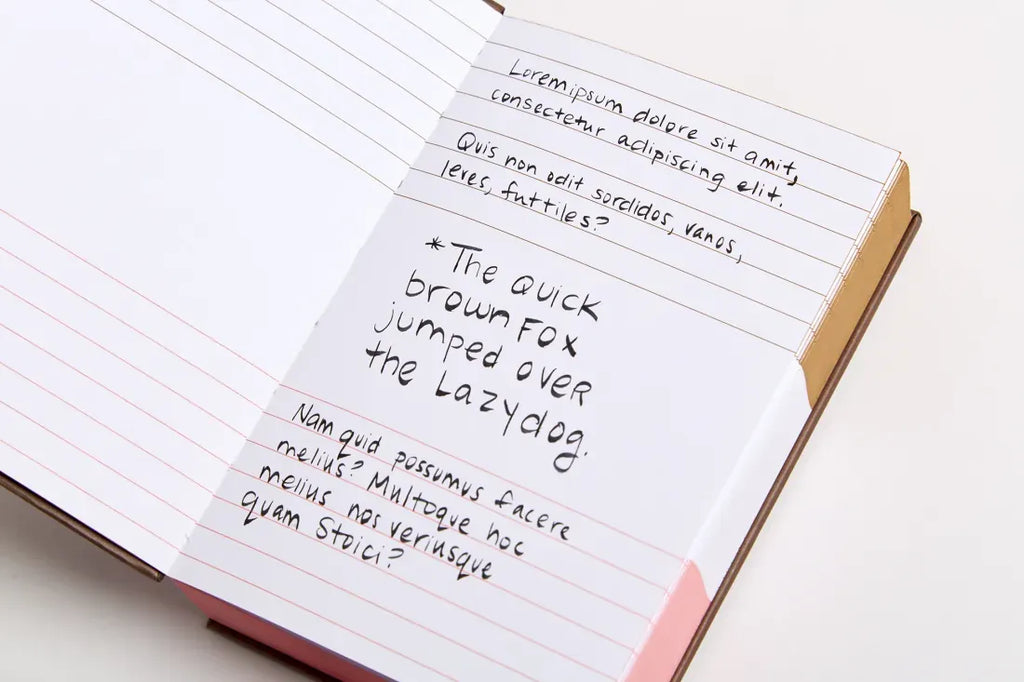 Loremipsum dolore sit amit,
consectetur adipiscing elit.
Quis non odit sordidos, vanos,
leves, futtiles?
*The Quick
brown Fox
jumped over
the Lazy dog.
Nam quid possumus facere
melius? Multoque hoc
melius nos veriusque
quam Stoici?